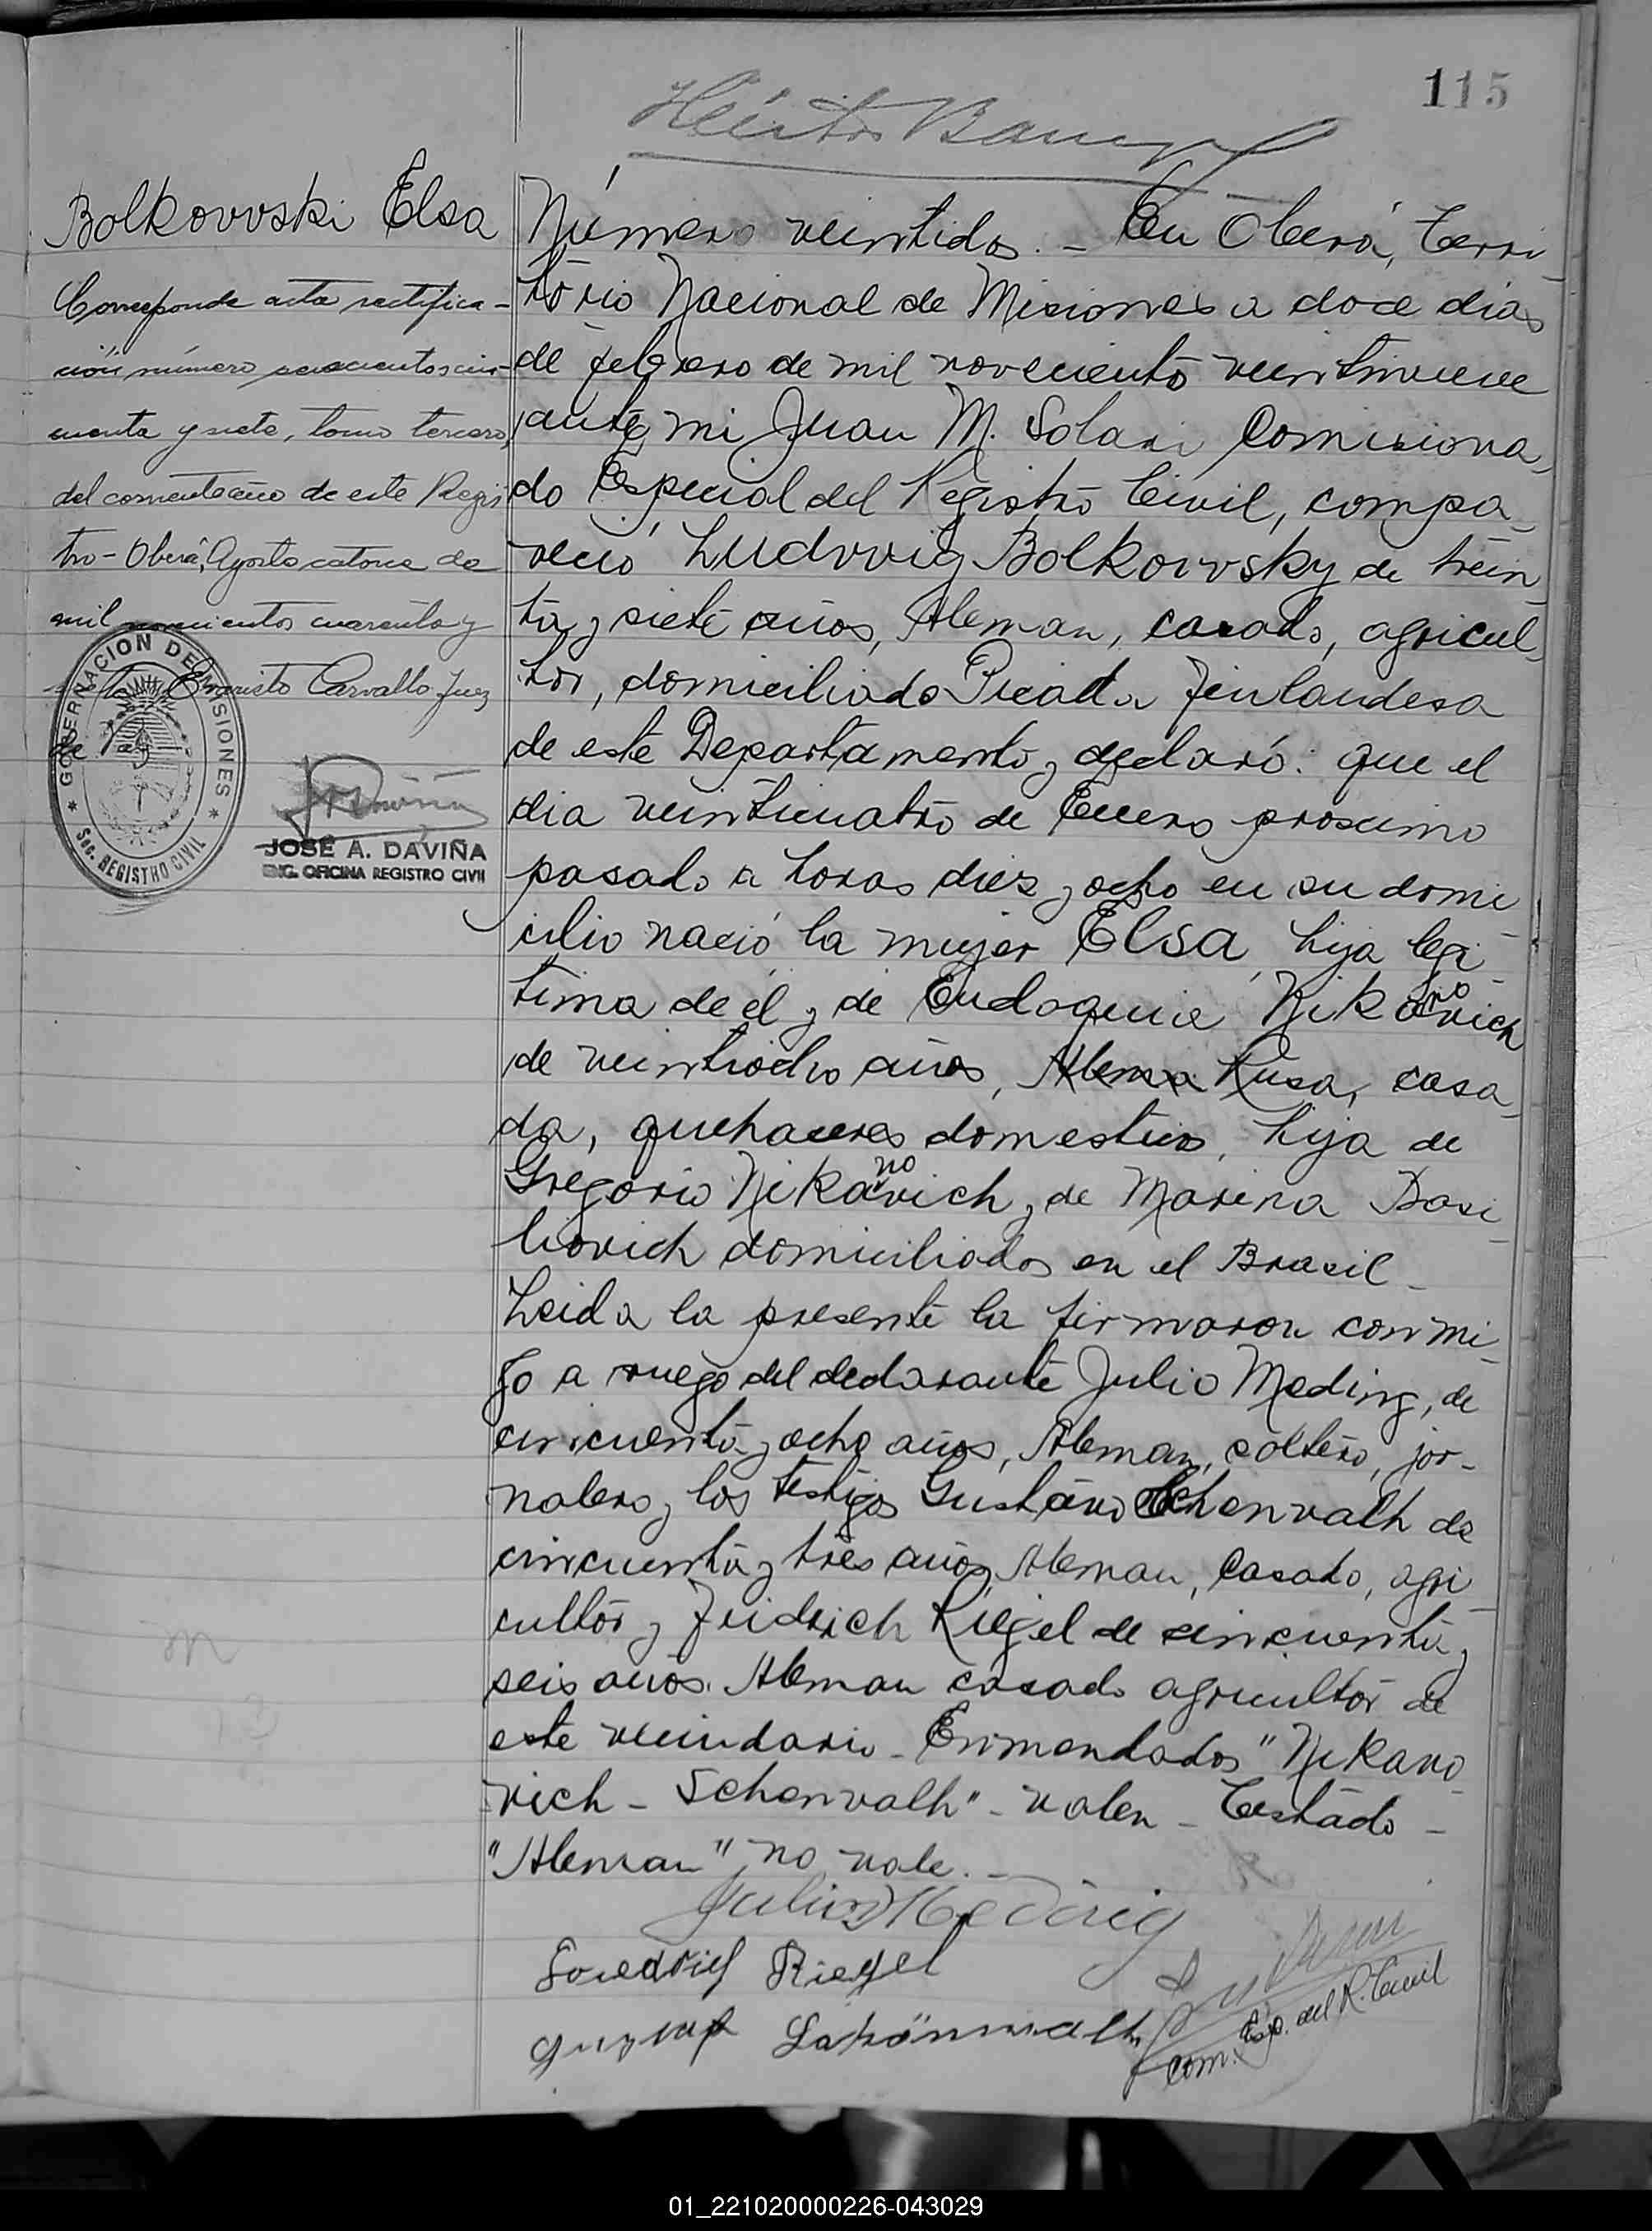 115
Bolkovvski Elsa
Corresponde acta rectifica-
ción número seiscientos cin-
cuenta y siete, tomo tercero,
del corriente año de este Regis
tro - Oberá, Agosto catorce de
mil novecientos cuarenta y
Evaristo Carvallo Juez
de
GOBERNACION DE MISIONES
Sec. REGISTRO CIVIL
JOSÉ A. DAVIÑA
ENC. OFICINA REGISTRO CIVIL
Número veintidos. - En Oberá, Terri
torio Nacional de Misiones a doce dias
de febrero de mil noveciento veintinueve
ante mi Juan M. Solari Comisiona
do Especial del Registro Civil, compa
reció Ludvvig Bolkovvsky de trein
ta y siete años, Aleman, casado, agricul
tor, domiciliado Picada Finlandesa
de este Departamento y declaró: que el
dia veinticuatro de Enero proximo
pasado a horas diez y ocho en su domi
cilio nació la mujer Elsa, hija legi
tima de él y de Eudoquia Nikanovich
de veintiocho años, Alema Rusa, casa
da, quehaceres domesticos, hija de
Gregorio Nikanovich y de Marina Basi
liovich domiciliados en el Brasil -
Leida la presente la firmaron conmi
go a ruego del declarante Julio Meding, de
cincuenta y ocho años, Aleman, soltero, jor-
nalero y los testigos Gustavo Schenvalh de
cincuenta y tres años, Aleman, Casado, agri
cultor y Fridrich Riegel de cincuenta y
seis años. Aleman casado agricultor de
este vecindario - Enmendados "Nikano
vich - Schenvalh" - valen - Testado -
"Aleman" no vale. -
Julius Meding
Friedrich Riegel
Gustav Schönwalh
Com. Esp. del R. Civil
01_221020000226-043029